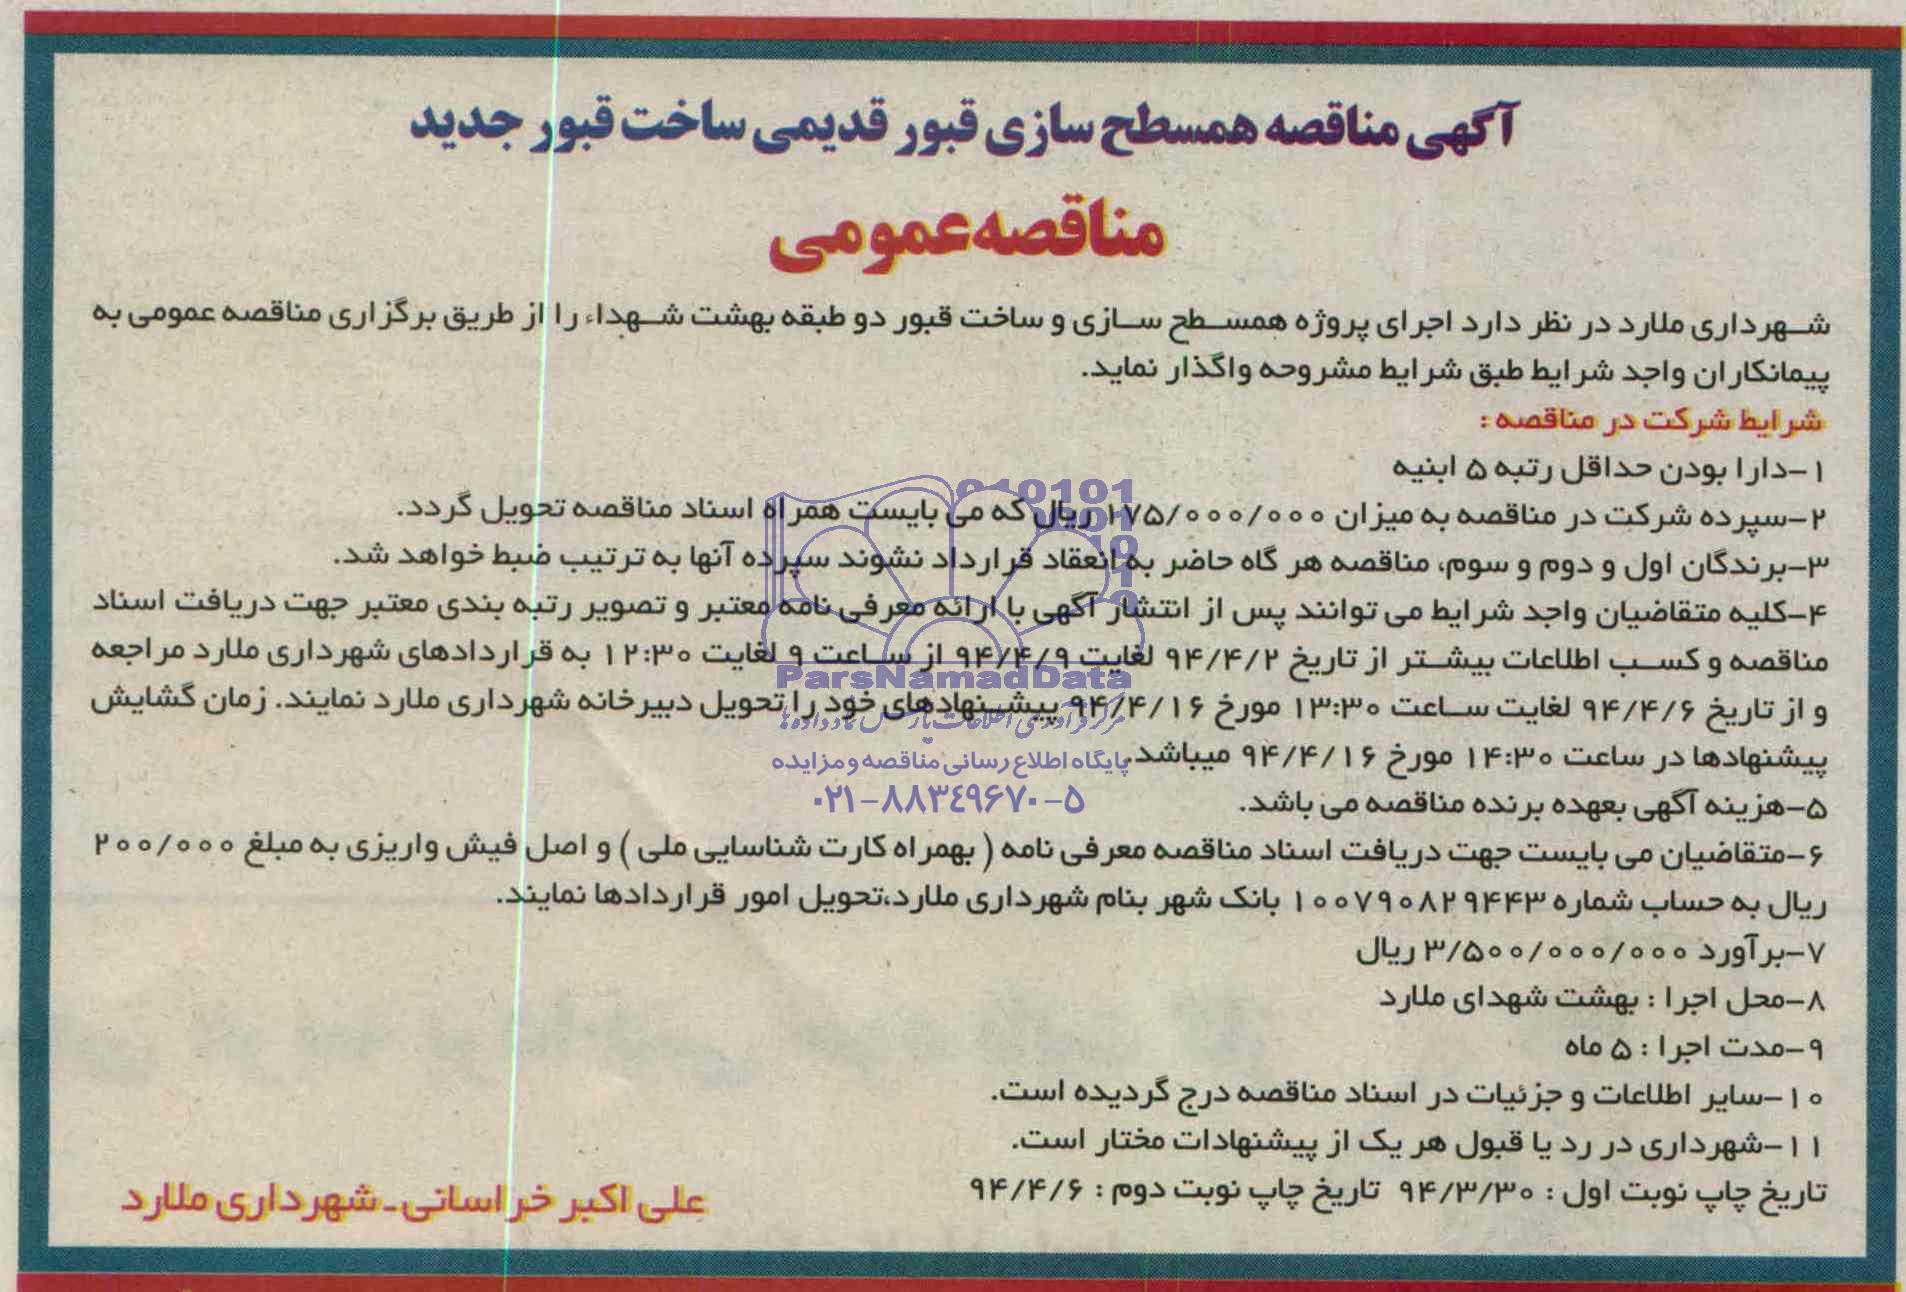 آگهی مناقصه همسطح سازی قبور قدیمی ساخت قبور جدید
مناقصه عمومی
شهرداری ملارد در نظر دارد اجرای پروژه همسطح سازی و ساخت قبور دو طبقه بهشت شهداء را از طریق برگزاری مناقصه عمومی به
پیمانکاران واجد شرایط طبق شرایط مشروحه واگذار نماید.
شرایط شرکت در مناقصه :
۱-دارا بودن حداقل رتبه ۵ ابنیه
۲-سپرده شرکت در مناقصه به میزان ۱۷۵/۰۰۰/۰۰۰ ریال که می بایست همراه اسناد مناقصه تحویل گردد.
۳-برندگان اول و دوم و سوم، مناقصه هر گاه حاضر به انعقاد قرارداد نشوند سپرده آنها به ترتیب ضبط خواهد شد.
۴-کلیه متقاضیان واجد شرایط می توانند پس از انتشار آگهی با ارائه معرفی نامه معتبر و تصویر رتبه بندی معتبر جهت دریافت اسناد
مناقصه و کسب اطلاعات بیشتر از تاریخ ۹۴/۴/۲ لغایت ۹۴/۴/۹ از ساعت ۹ لغایت ۱۲:۳۰ به قراردادهای شهرداری ملارد مراجعه
و از تاریخ ۹۴/۴/۶ لغایت ساعت ۱۳:۳۰ مورخ ۹۴/۴/۱۶ پیشنهادهای خود را تحویل دبیرخانه شهرداری ملارد نمایند. زمان گشایش
پیشنهادها در ساعت ۱۴:۳۰ مورخ ۹۴/۴/۱۶ میباشد.
۵-هزینه آگهی بعهده برنده مناقصه می باشد.
۶-متقاضیان می بایست جهت دریافت اسناد مناقصه معرفی نامه ( بهمراه کارت شناسایی ملی ) و اصل فیش واریزی به مبلغ ۲۰۰/۰۰۰
ریال به حساب شماره ۱۰۰۷۹۰۸۲۹۴۴۳ بانک شهر بنام شهرداری ملارد،تحویل امور قراردادها نمایند.
۷-برآورد ۳/۵۰۰/۰۰۰/۰۰۰ ریال
۸-محل اجرا : بهشت شهدای ملارد
۹-مدت اجرا : ۵ ماه
۱۰-سایر اطلاعات و جزئیات در اسناد مناقصه درج گردیده است.
۱۱-شهرداری در رد یا قبول هر یک از پیشنهادات مختار است.
تاریخ چاپ نوبت اول : ۹۴/۳/۳۰ تاریخ چاپ نوبت دوم : ۹۴/۴/۶
علی اکبر خراسانی-شهرداری ملارد
010101
ParsNamadData
مرکز فرآوری اطلاعات پارس نماد داده ها
پایگاه اطلاع رسانی مناقصه و مزایده
۰۲۱-۸۸۳۴۹۶۷۰-۵